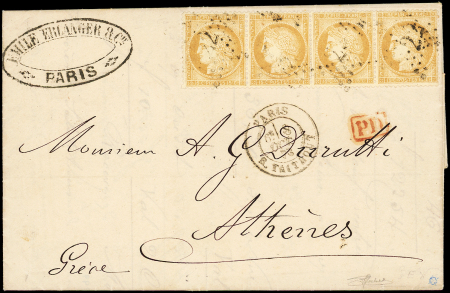 EMILE ERLANGER & Cie
PARIS
PARIS
R. TAITBOUT
PD
Monsieur A. G.
Athènes
Grèce